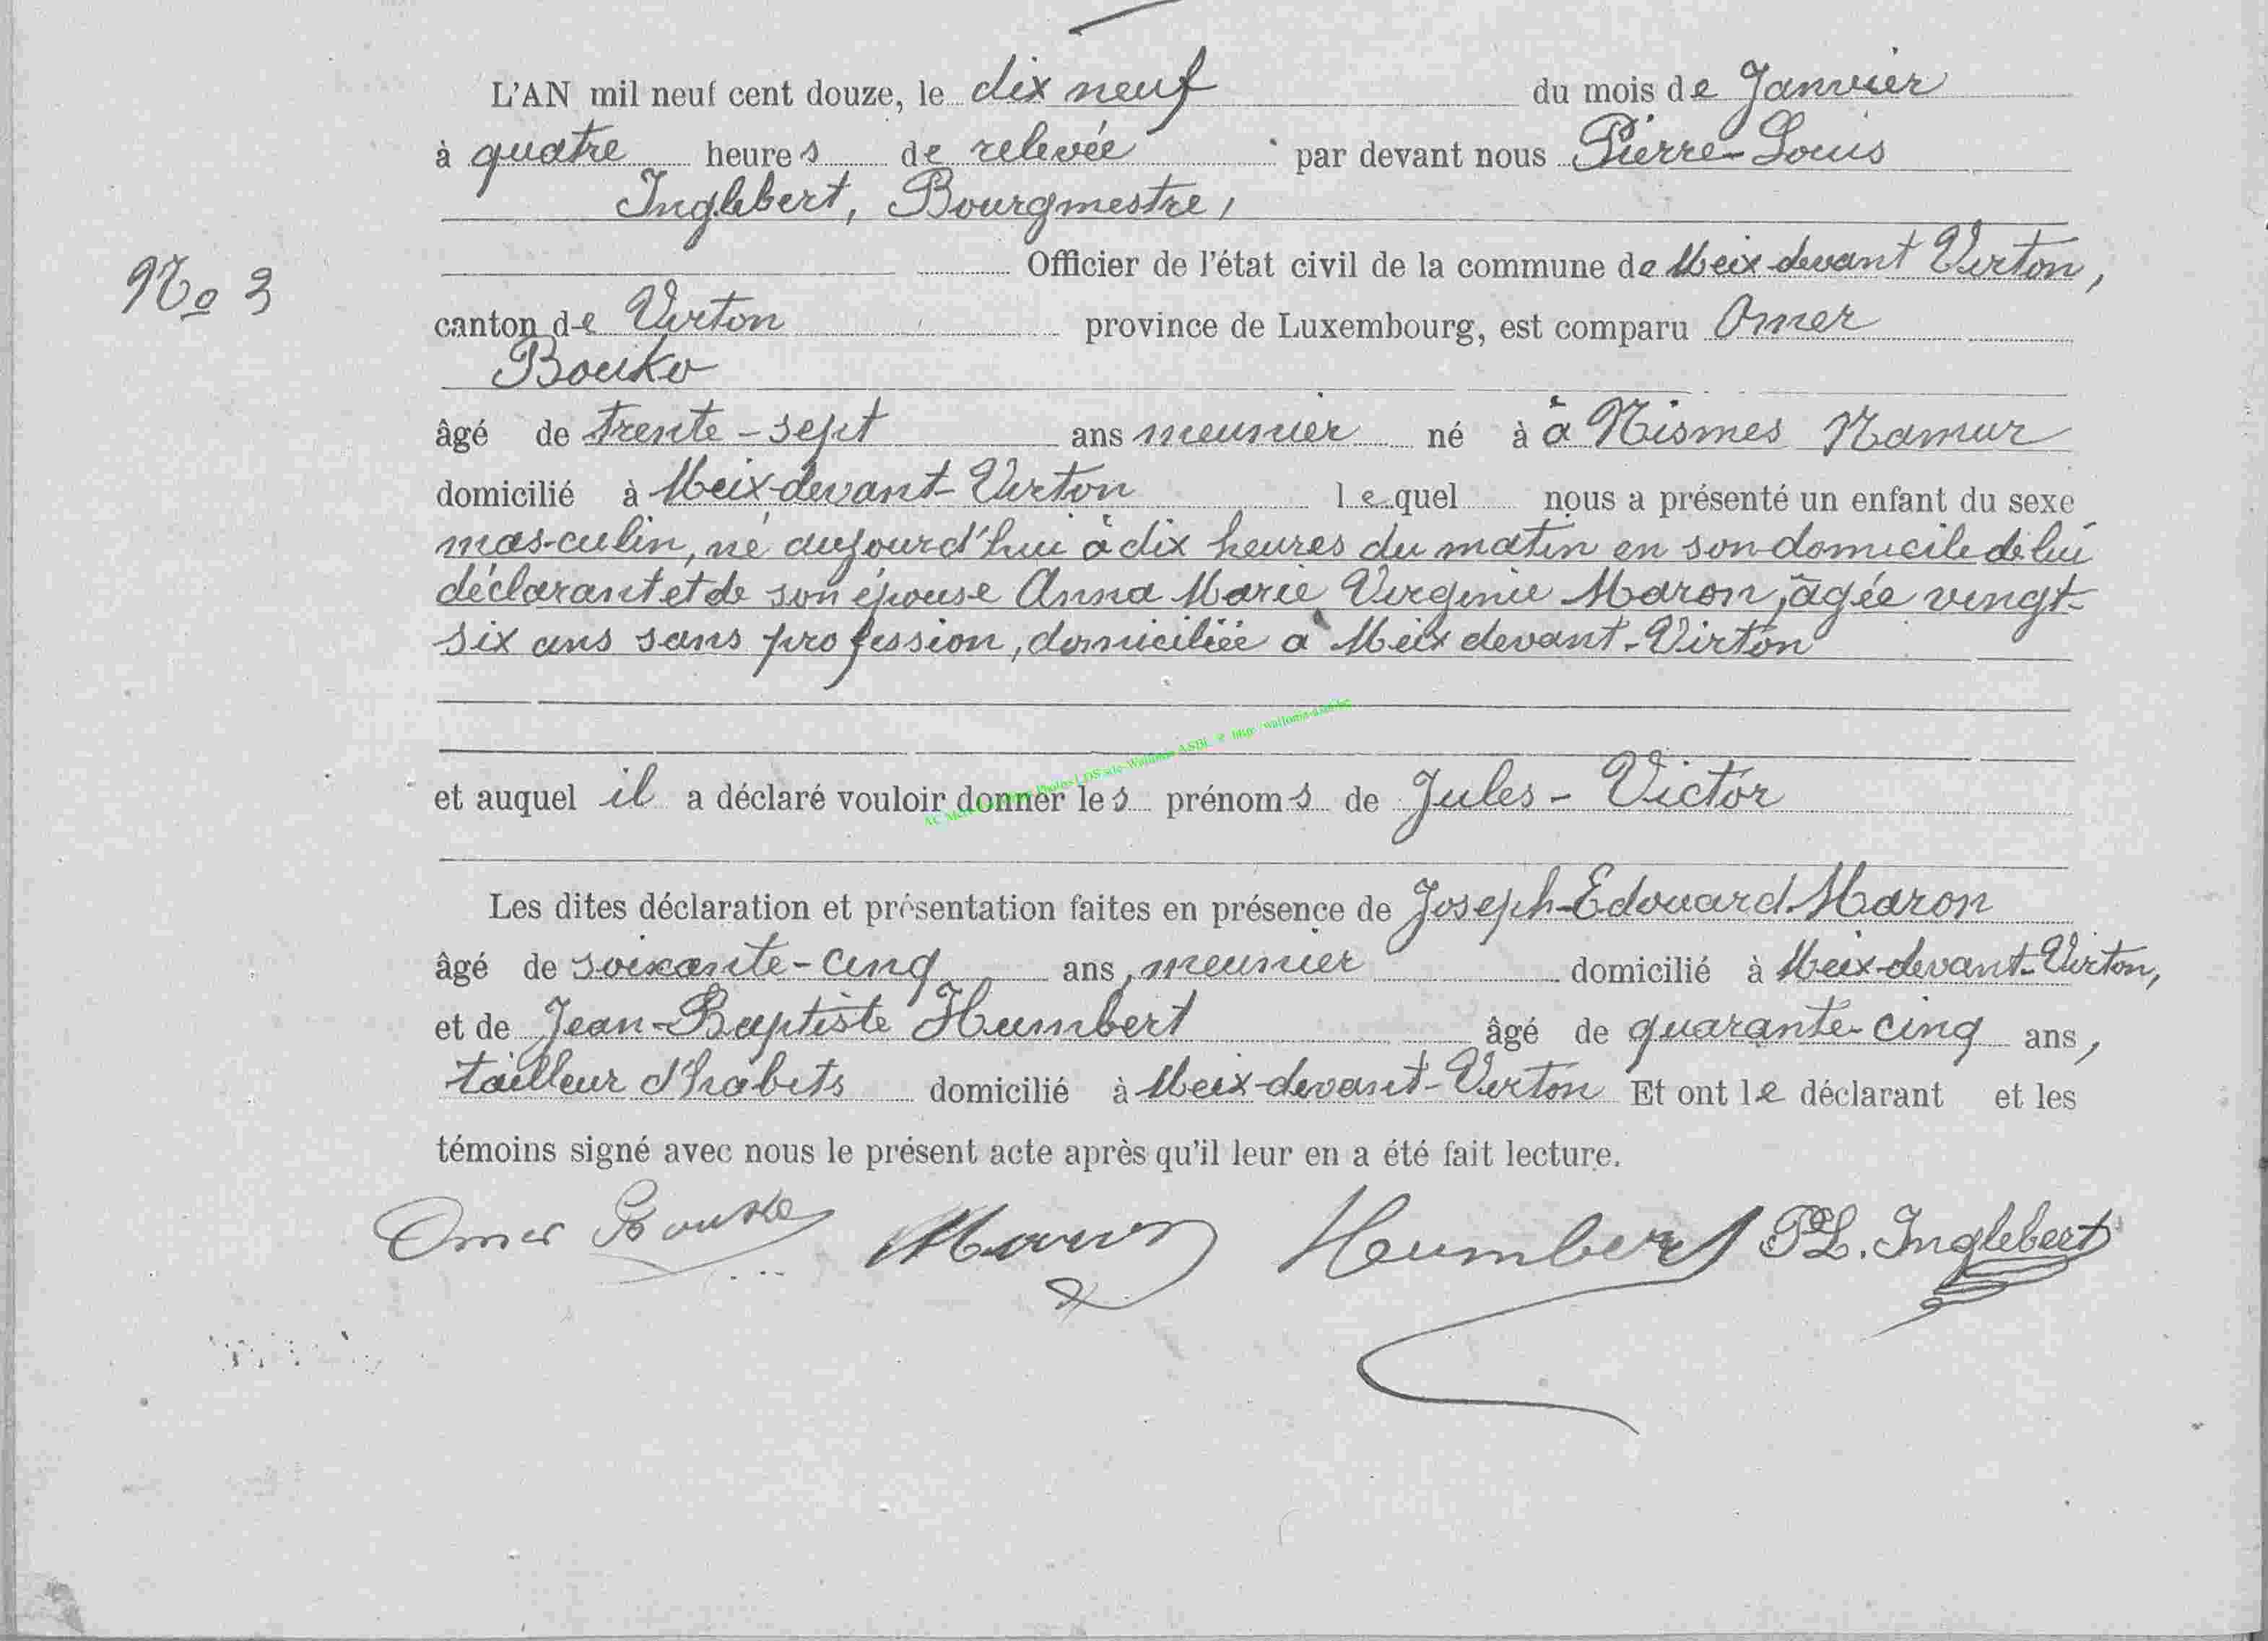 L'AN mil neuf cent douze, le dix neuf du mois de Janvier
à quatre heures de relevée par devant nous Pierre-Louis
Inglebert, Bourgmestre,
Officier de l'état civil de la commune de Meix-devant Virton,
No 3
canton de Virton province de Luxembourg, est comparu Omer
Bouko
âgé de trente-sept ans meunier né à à Nismes Namur
domicilié à Meix-devant-Virton lequel nous a présenté un enfant du sexe
mas-culin, né aujourd'hui à dix heures du matin en son domicile de lui
déclarant et de son épouse Anna Marie Virginie Maron, âgée vingt-
six ans sans profession, domiciliée à Meix devant-Virton
et auquel il a déclaré vouloir donner les prénoms de Jules-Victor
Les dites déclaration et présentation faites en présence de Joseph-Edouard Maron
âgé de soixante-cinq ans, meunier domicilié à Meix-devant-Virton,
et de Jean-Baptiste Humbert âgé de quarante-cinq ans,
tailleur d'habits domicilié à Meix-devant-Virton Et ont le déclarant et les
témoins signé avec nous le présent acte après qu'il leur en a été fait lecture.
Omer Bouko Maron Humbert PL. Inglebert